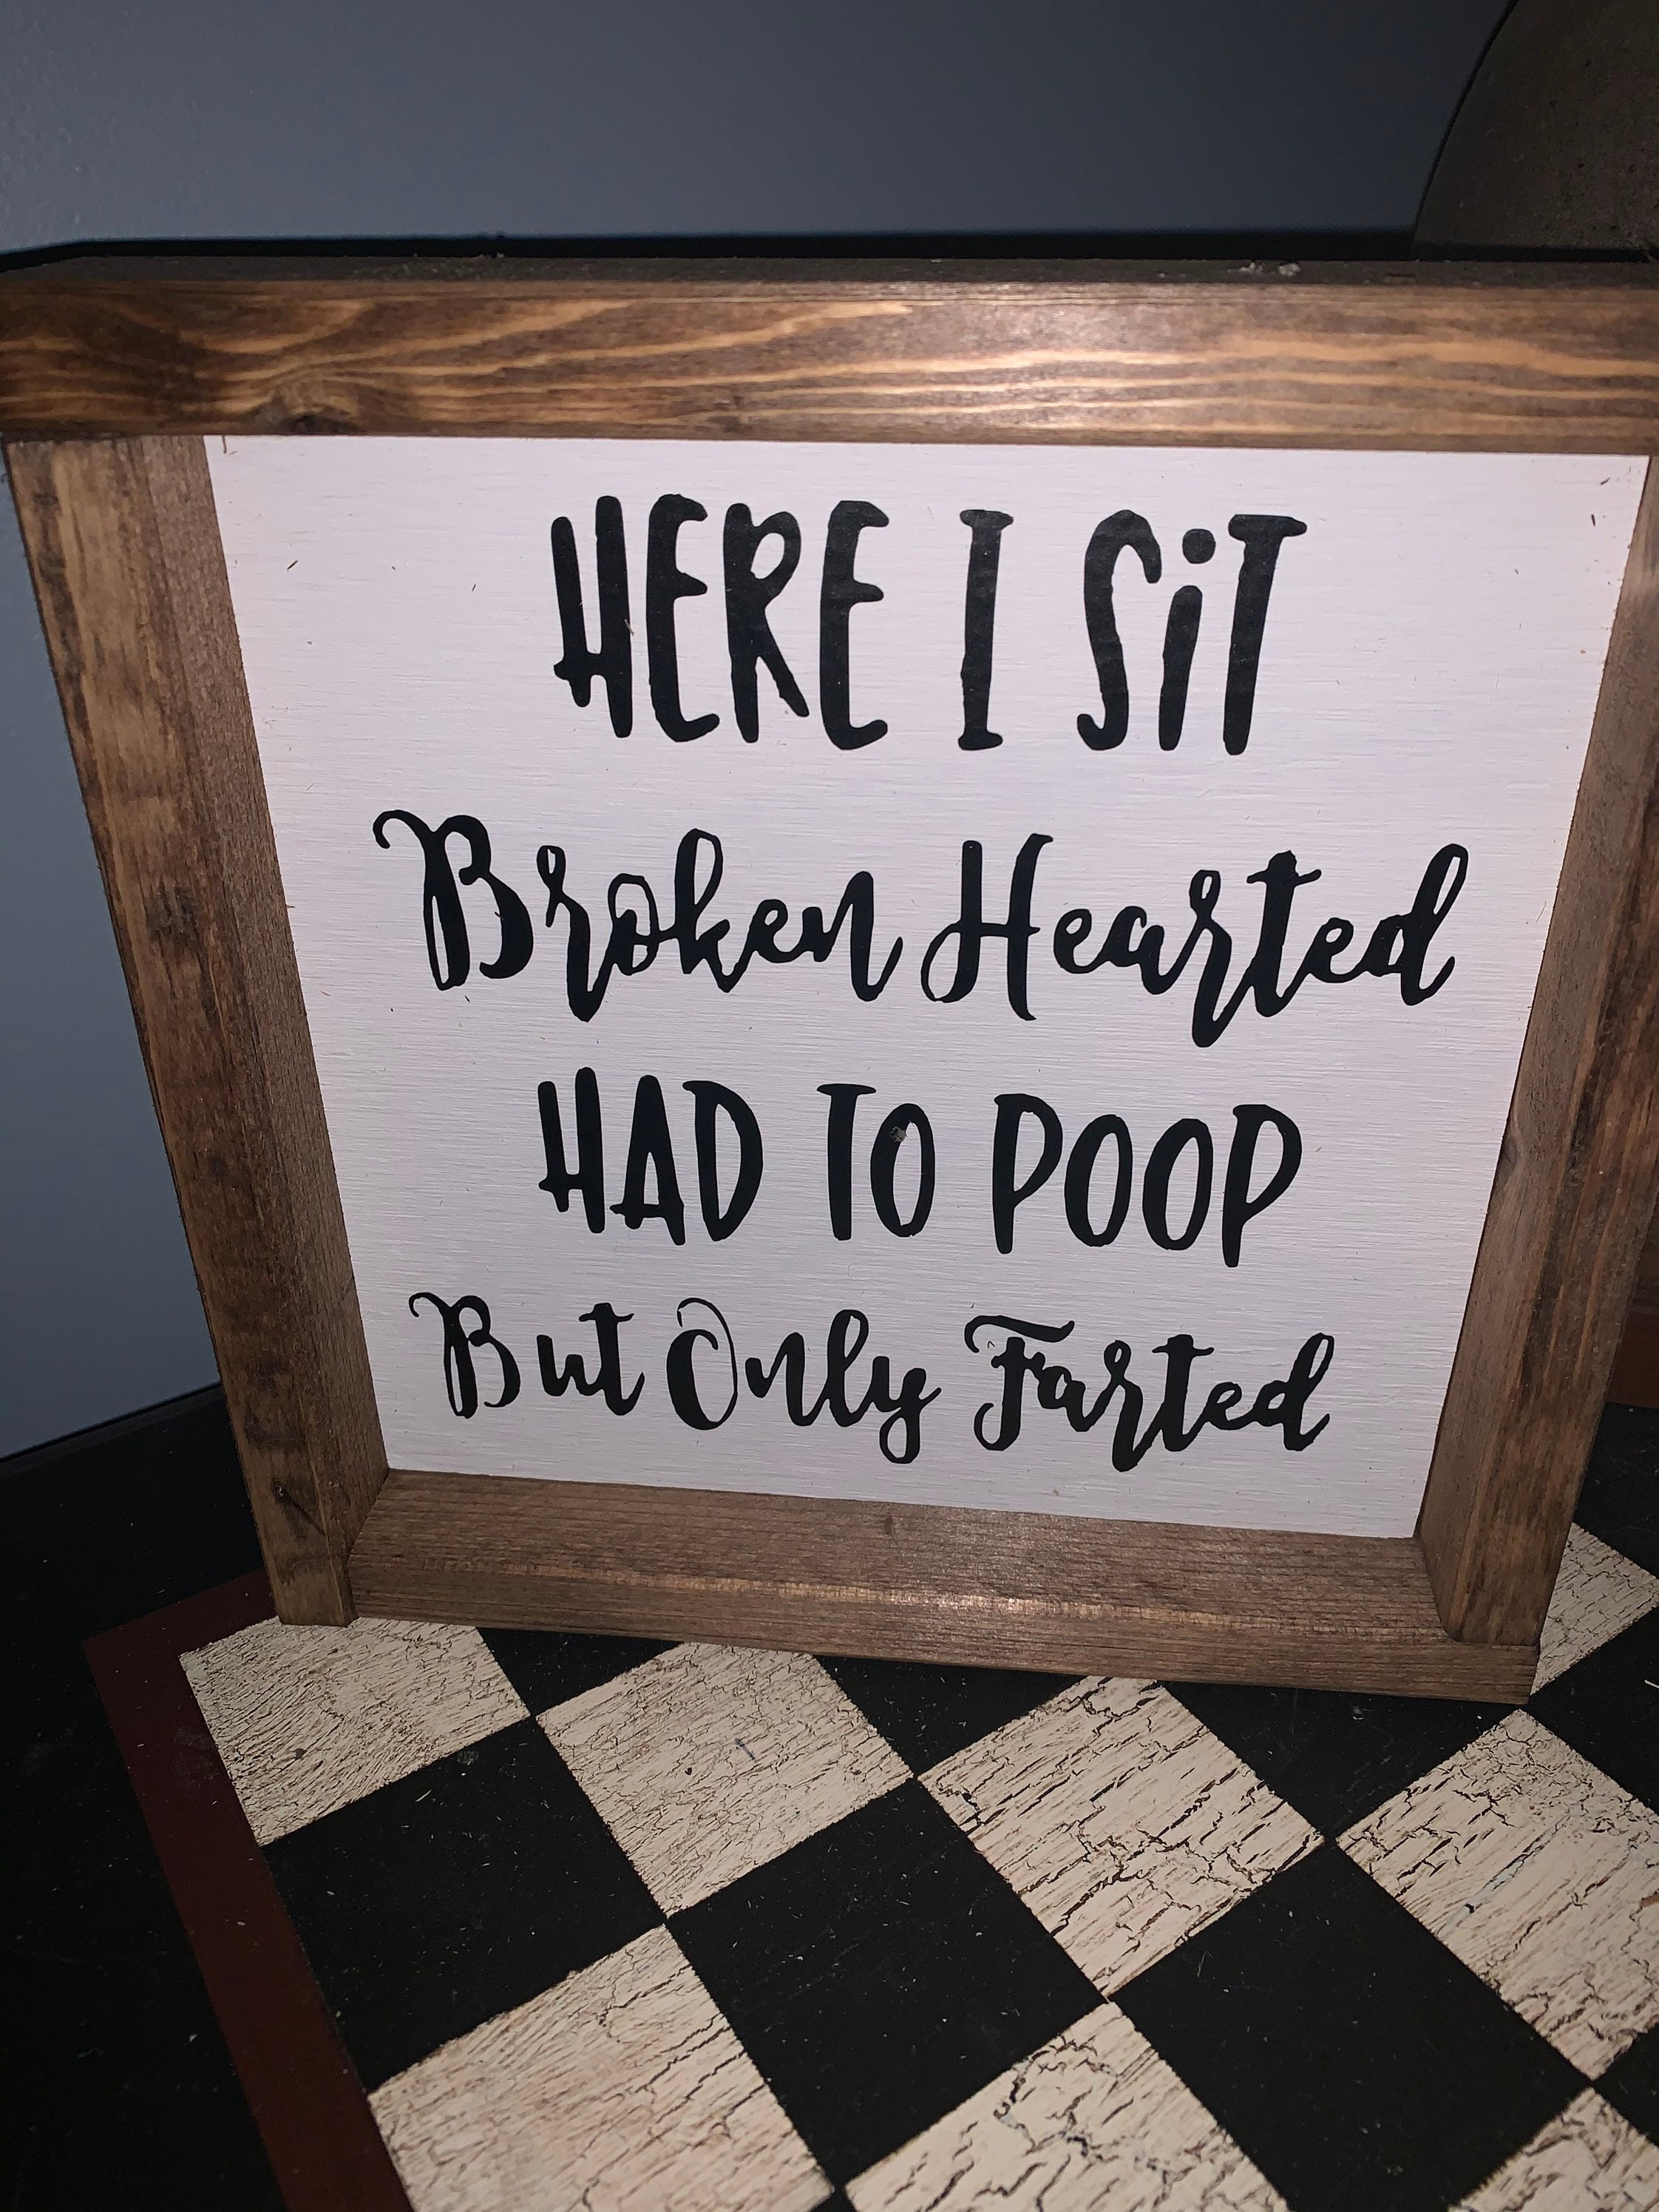 HERE I SiT
Broken Hearted
HAD TO POOP
But Only Farted